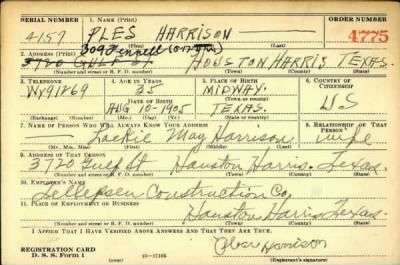 SERIAL NUMBER 1. NAME (Print) ORDER NUMBER
4157 PLES HARRISON 4775
(First) (Middle) (Last)
2. ADDRESS (Print)
3720 GULF ST. HOUSTON HARRIS TEXAS.
(Number and street or R. F. D. number) (Town) (County) (State)
3. TELEPHONE 4. AGE IN YEARS 5. PLACE OF BIRTH 6. COUNTRY OF CITIZENSHIP
35 MIDWAY.
Wy91269 DATE OF BIRTH (Town or county)
AUG 10-1905 TEXAS. U.S
(Exchange) (Number) (Mo.) (Day) (Yr.) (State or country)
7. NAME OF PERSON WHO WILL ALWAYS KNOW YOUR ADDRESS 8. RELATIONSHIP OF THAT PERSON
May Harrison wife
(Mr., Mrs., Miss) (First) (Middle) (Last)
9. ADDRESS OF THAT PERSON
3720 Gulf St Houston Harris. Texas
(Number and street or R. F. D. number) (Town) (County) (State)
10. EMPLOYER'S NAME
Construction Co,
11. PLACE OF EMPLOYMENT OR BUSINESS
Houston Harris, Texas.
(Number and street or R. F. D. number) (Town) (County) (State)
I AFFIRM THAT I HAVE VERIFIED ABOVE ANSWERS AND THAT THEY ARE TRUE.
REGISTRATION CARD
D. S. S. Form 1 16—17105 Harrison
(Registrant's signature)